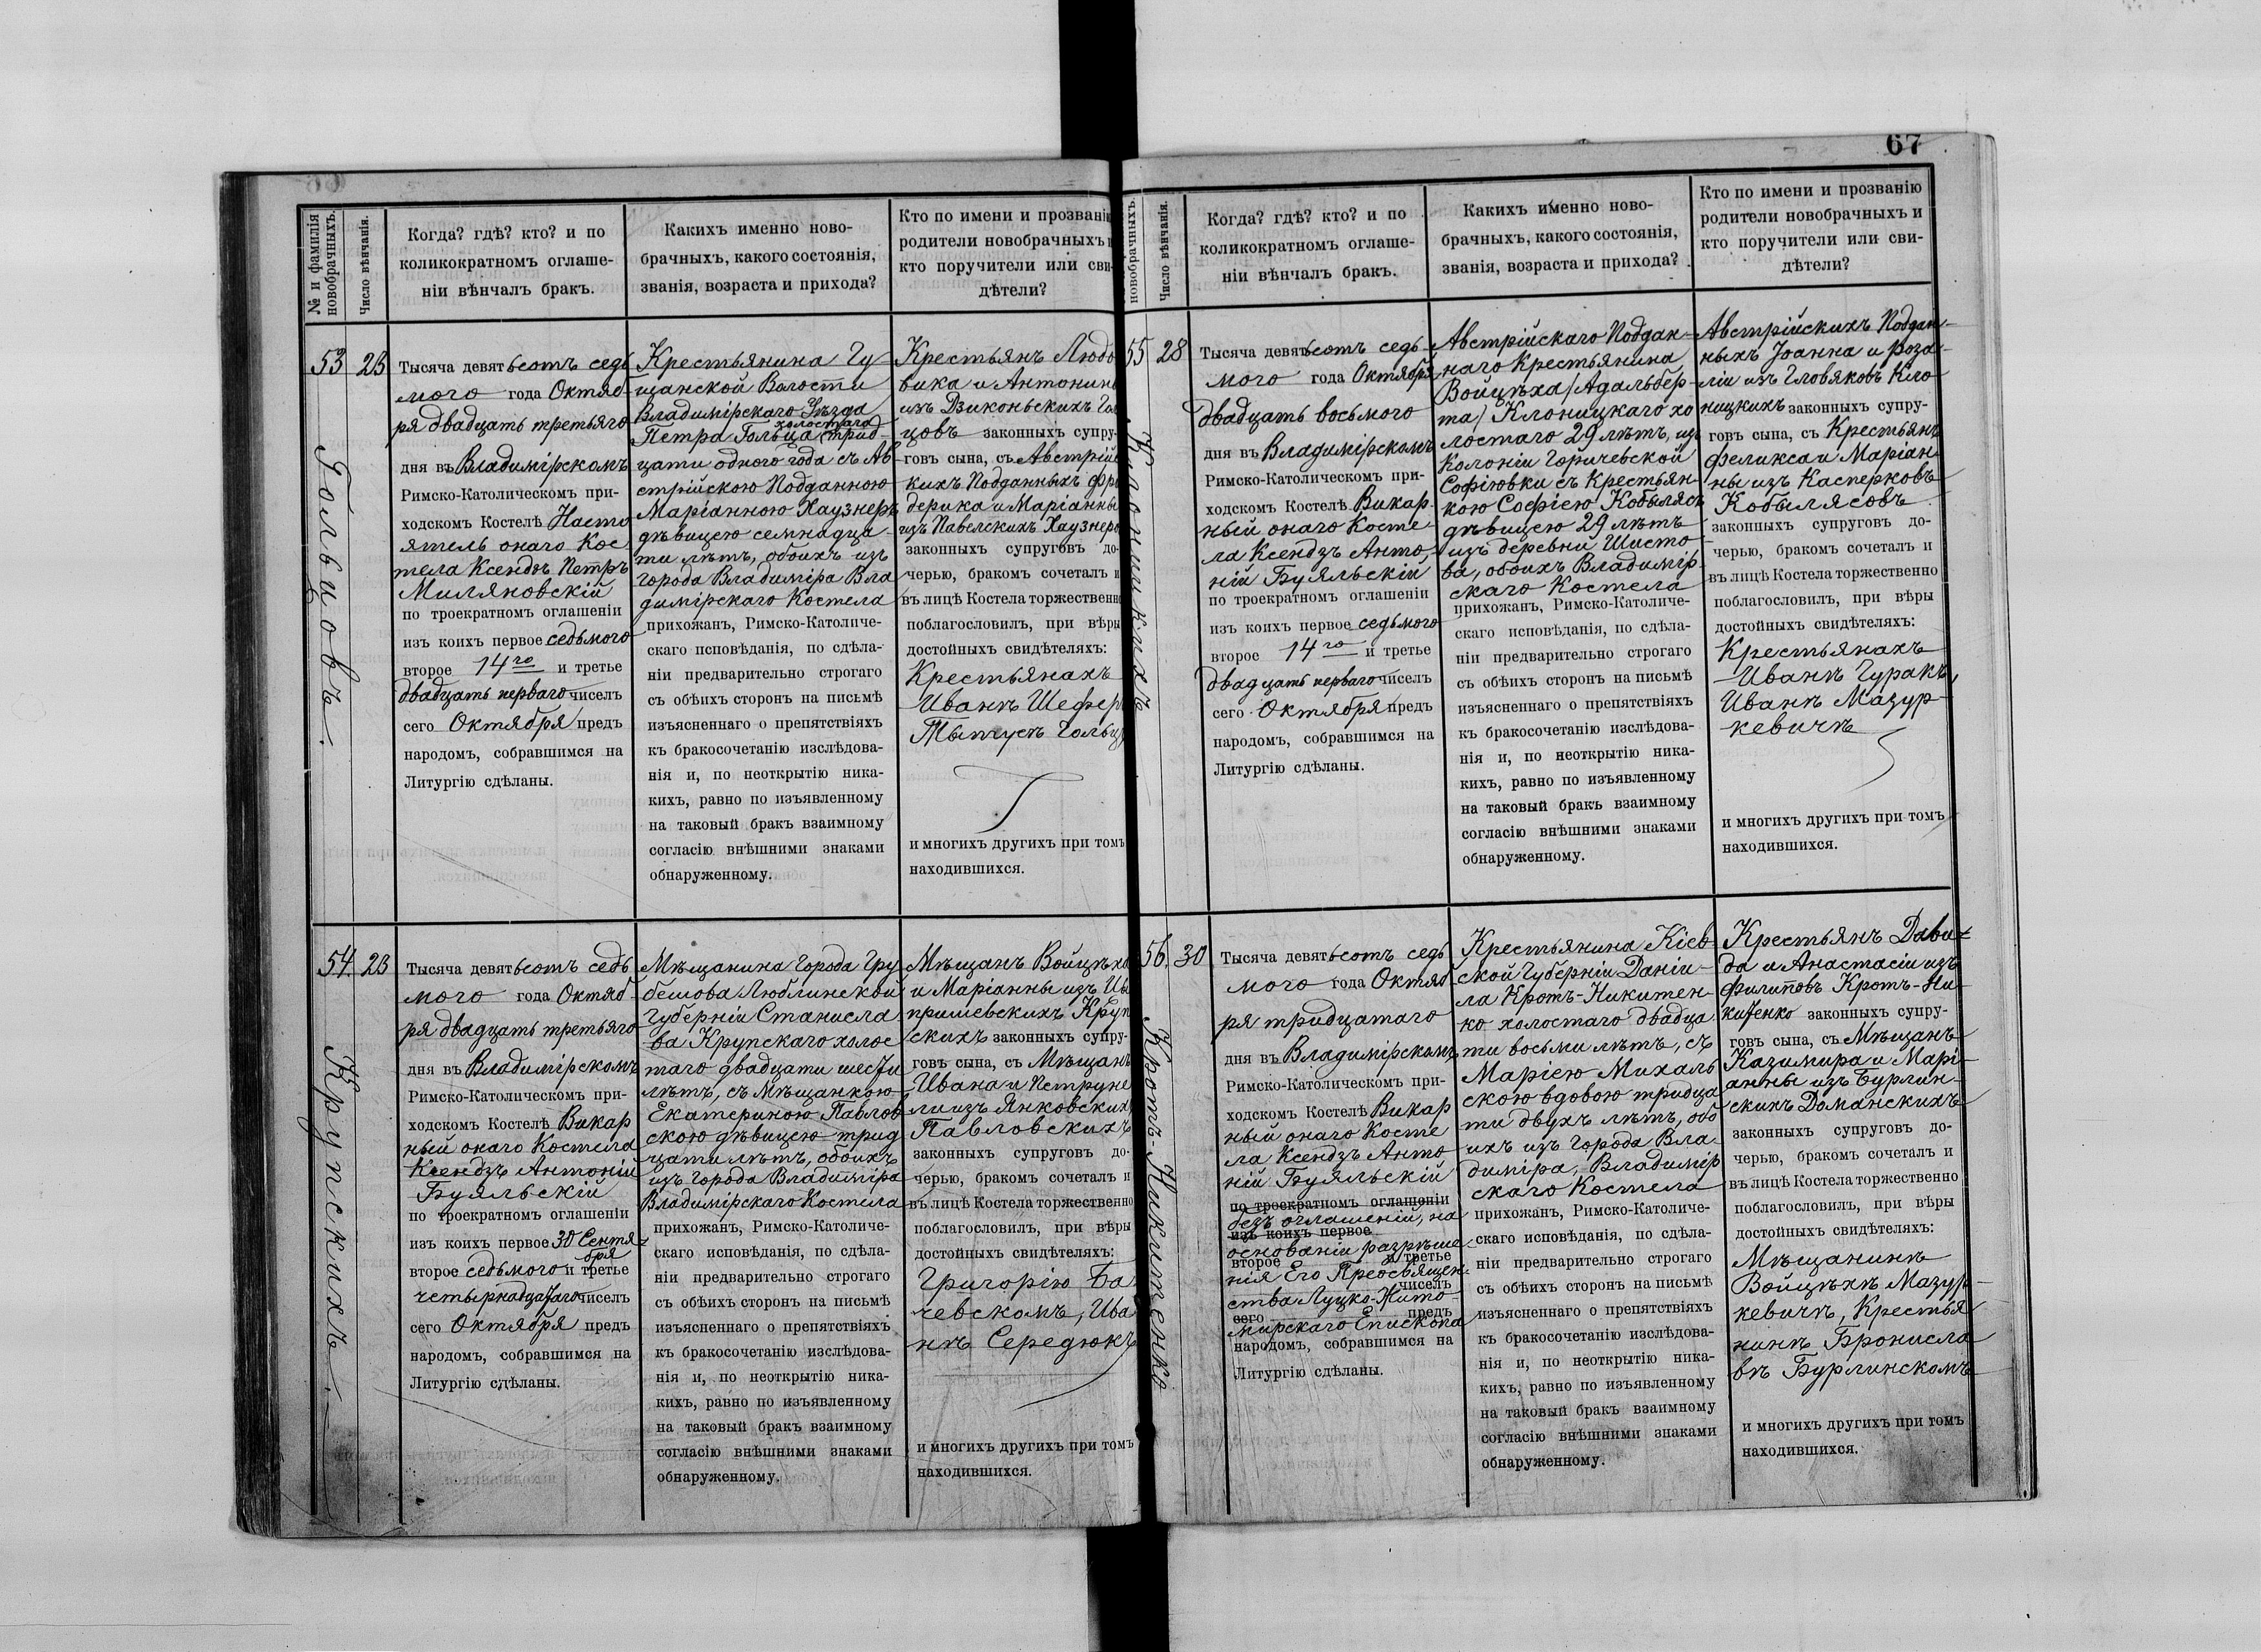 67
№ и фамилія новобрачныхъ.
Число вѣнчанія.
Когда? гдѣ? кто? и по
коликократномъ оглаше-
ніи вѣнчалъ бракъ.
Какихъ именно ново-
брачныхъ, какого состоянія,
званія, возраста и прихода?
Кто по имени и прозванію
родители новобрачныхъ и
кто поручители или сви-
дѣтели?
53
23
Гольцовъ.
Тысяча девятьсотъ седь
мого года Октяб-
ря двадцать третьяго
дня въ Владимірскомъ
Римско-Католическомъ при-
ходскомъ Костелѣ Насто
ятель онаго Кос
тела Ксендзъ Петръ
Миляновскій
по троекратномъ оглашеніи
изъ коихъ первое седьмого
второе 14го и третье
двадцать перваго чиселъ
сего Октября предъ
народомъ, собравшимся на
Литургію сдѣланы.
Крестьянина Гу-
щанской Волости
Владимірскаго Уѣзда
холостаго
Петра Гольца трид-
цати одного года съ Ав
стрійскою Подданною
Маріанною Хаузнеръ
дѣвицею семнадца-
ти лѣтъ, обоихъ изъ
города Владиміра Вла
димірскаго Костела
прихожанъ, Римско-Католиче-
скаго исповѣданія, по сдѣла-
ніи предварительно строгаго
съ обѣихъ сторонъ на письмѣ
изъясненнаго о препятствіяхъ
къ бракосочетанію изслѣдова-
нія и, по неоткрытію ника-
кихъ, равно по изъявленному
на таковый бракъ взаимному
согласію внѣшними знаками
обнаруженному.
Крестьянъ Людо
вика и Антонины
изъ Дзиконьскихъ Гол
цовъ законныхъ супру-
говъ сына, съ Австрійс
кихъ Подданныхъ Фре
дерика и Маріанны
изъ Павелскихъ Хаузнеро
законныхъ супруговъ до-
черью, бракомъ сочеталъ и
въ лицѣ Костела торжественно
поблагословилъ, при вѣры
достойныхъ свидѣтеляхъ:
Крестьянахъ
Иванѣ Шефер
Тытусѣ Гольц
и многихъ другихъ при томъ
находившихся.
54.
23
Крупскихъ.
Тысяча девятьсотъ седь
мого года Октяб-
ря двадцать третьяго
дня въ Владимірскомъ
Римско-Католическомъ при-
ходскомъ Костелѣ Викар
ный онаго Костела
Ксендзъ Антоній
Буяльскій
по троекратномъ оглашеніи
изъ коихъ первое 30 Сентя-
бря
второе седьмого и третье
четырнадцатаго чиселъ
сего Октября предъ
народомъ, собравшимся на
Литургію сдѣланы.
Мѣщанина города Гру
бешова Люблинской
Губерніи Станисла
ва Крупскаго холос
таго двадцати шести
лѣтъ, съ Мѣщанкою
Екатериною Павлов
скою дѣвицею трид
цати лѣтъ, обоихъ
изъ города Владиміра
Владимірскаго Костела
прихожанъ, Римско-Католиче-
скаго исповѣданія, по сдѣла-
ніи предварительно строгаго
съ обѣихъ сторонъ на письмѣ
изъясненнаго о препятствіяхъ
къ бракосочетанію изслѣдова-
нія и, по неоткрытію ника-
кихъ, равно по изъявленному
на таковый бракъ взаимному
согласію внѣшними знаками
обнаруженному.
Мѣщанъ Войцѣха
и Маріанны изъ
пришевскихъ Круп
скихъ законныхъ супру-
говъ сына, съ Мѣщанъ
Ивана и Петруне
ли изъ Янковских
Павловскихъ
законныхъ супруговъ до-
черью, бракомъ сочеталъ и
въ лицѣ Костела торжественно
поблагословилъ, при вѣры
достойныхъ свидѣтеляхъ:
Григорію Ба
чевскомъ, Ива
нѣ Середюкѣ
и многихъ другихъ при томъ
находившихся.
новобрачныхъ.
Число вѣнчанія.
Когда? гдѣ? кто? и по
коликократномъ оглаше-
ніи вѣнчалъ бракъ.
Какихъ именно ново-
брачныхъ, какого состоянія,
званія, возраста и прихода?
Кто по имени и прозванію
родители новобрачныхъ и
кто поручители или сви-
дѣтели?
55
28
Клоницкихъ
Тысяча девятьсотъ седь-
мого года Октября
двадцать восьмого
дня въ Владимірскомъ
Римско-Католическомъ при-
ходскомъ Костелѣ Викар
ный онаго Косте-
ла Ксендзъ Анто-
ній Буяльскій
по троекратномъ оглашеніи
изъ коихъ первое седьмого
второе 14го и третье
двадцать перваго чиселъ
сего Октября предъ
народомъ, собравшимся на
Литургію сдѣланы.
Австрійскаго Поддан-
наго Крестьянина
Войцѣха/Адальбер-
та/ Клоницкаго хо
лостаго 29 лѣтъ, изъ
Колоніи Горичевской
Софіювки съ Крестьян-
кою Софіею Кобылясъ
дѣвицею 29 лѣтъ
изъ деревни Шисто-
ва, обоихъ Владимір
скаго Костела
прихожанъ, Римско-Католиче-
скаго исповѣданія, по сдѣла-
ніи предварительно строгаго
съ обѣихъ сторонъ на письмѣ
изъясненнаго о препятствіяхъ
къ бракосочетанію изслѣдова-
нія и, по неоткрытію ника-
кихъ, равно по изъявленному
на таковый бракъ взаимному
согласію внѣшними знаками
обнаруженному.
Австрійскихъ Поддан-
ныхъ Іоанна и Роза-
ліи изъ Гловяковъ Кло-
ницкихъ законныхъ супру-
говъ сына, съ Крестьянъ
Феликса и Маріан-
ны изъ Касперковъ
Кобылясовъ
законныхъ супруговъ до-
черью, бракомъ сочеталъ и
въ лицѣ Костела торжественно
поблагословилъ, при вѣры
достойныхъ свидѣтеляхъ:
Крестьянахъ
Иванѣ Гуракѣ,
Иванѣ Мазур-
кевичѣ
и многихъ другихъ при томъ
находившихся.
56.
30
Кротъ-Никитенко
Тысяча девятьсотъ седь
мого года Октяб
ря тридцатаго
дня въ Владимірскомъ
Римско-Католическомъ при-
ходскомъ Костелѣ Викар
ный онаго Косте
ла Ксендзъ Анто
ній Буяльскій
по троекратномъ оглашеніи
безъ оглашеній, на
изъ коихъ первое
основаніи разрѣше-
второе и третье
нія Его Преосвящен-
чиселъ
ства Луцко-Жито-
сего предъ
мирскаго Епископа
народомъ, собравшимся на
Литургію сдѣланы.
Крестьянина Кіев
ской Губерніи Даніи-
ла Кротъ-Никитен-
ко холостаго двадца
ти восьми лѣтъ, съ
Маріею Михаль
скою вдовою тридца
ти двухъ лѣтъ, обо
ихъ изъ города Вла-
диміра, Владимір
скаго Костела
прихожанъ, Римско-Католиче-
скаго исповѣданія, по сдѣла-
ніи предварительно строгаго
съ обѣихъ сторонъ на письмѣ
изъясненнаго о препятствіяхъ
къ бракосочетанію изслѣдова-
нія и, по неоткрытію ника-
кихъ, равно по изъявленному
на таковый бракъ взаимному
согласію внѣшними знаками
обнаруженному.
Крестьянъ Дави-
да и Анастасіи изъ
Филиповъ Кротъ-Ни-
китенко законныхъ супру-
говъ сына, съ Мѣщанъ
Казимира и Марі-
анны изъ Бурлин-
скихъ Доманскихъ
законныхъ супруговъ до-
черью, бракомъ сочеталъ и
въ лицѣ Костела торжественно
поблагословилъ, при вѣры
достойныхъ свидѣтеляхъ:
Мѣщанинѣ
Войцѣхѣ Мазур-
кевичѣ, Крестья
нинѣ Бронисла
вѣ Бурлинскомъ
и многихъ другихъ при томъ
находившихся.